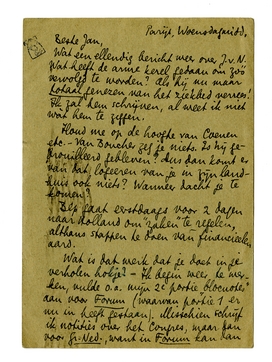 Parijs, Woensdagmidd.
Beste Jan,
Wat een ellendig bericht weer over J.v.N.
Wat heeft de arme kerel gedaan om zóó
vervolgd te worden? Als hij nu maar
totaal genezen van het ziekbed verrees!
Ik zal hem schrijven, al weet ik niet
wat hem te zeggen.
Houd me op de hoogte van Coenen
etc. - Van Boucher zeg je niets. Is hij ge-
brouilleerd gebleven? Dus dan komt er
van dat logeeren van je in zijn land-
huis ook niets? Wanneer dacht je te
komen?
Bep gaat eerstdaags voor 2 dagen
naar Holland om zaken te regelen,
althans stappen te doen van financieelen
aard.
Wat is dat werk dat je doet in ge-
verholen hokje? - Ik begin weer te wer-
ken, vulde o.a. mijn 2e portie blocnote
aan voor Forum (waarvan portie 1 er
nu in heeft gestaan). Misschien schrijf
ik notities over het Congres, maar dan
voor Gr. Ned., want in Forum kan dan